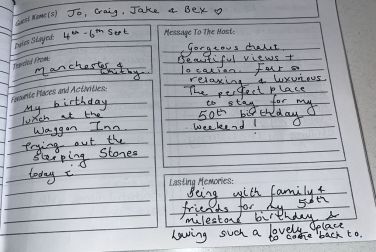 Guest Name(s) Jo, Craig, Jake & Bex ♡
Dates Stayed: 4th - 6th Sept
Travelled From:
Manchester &
Whitby.
Favourite Places and Activities:
My birthday
lunch at the
Waggon Inn.
Trying out the
Stepping Stones
today
Message To The Host:
Gorgeous chalet.
Beautiful views +
location. For a
relaxing & luxurious
The perfect place
to stay for my
50th birthday
weekend!
Lasting Memories:
Being with family &
friends for my 50th
milestone birthday &
having such a lovely place
to come back to.